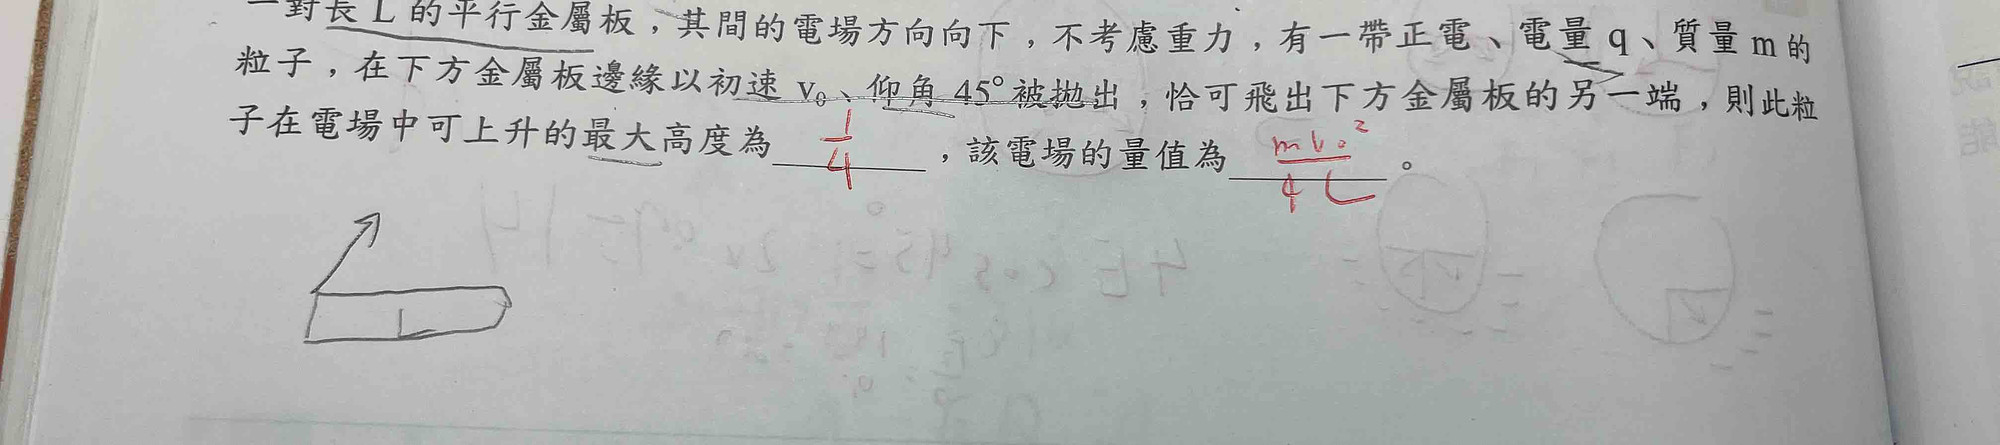 一對長 L 的平行金屬板，其間的電場方向向下，不考慮重力，有一帶正電、電量 q、質量 m 的
粒子，在下方金屬板邊緣以初速 v₀、仰角 45° 被拋出，恰可飛出下方金屬板的另一端，則此粒
子在電場中可上升的最大高度為 1/4 ，該電場的量值為 mv₀²/qL 。
L